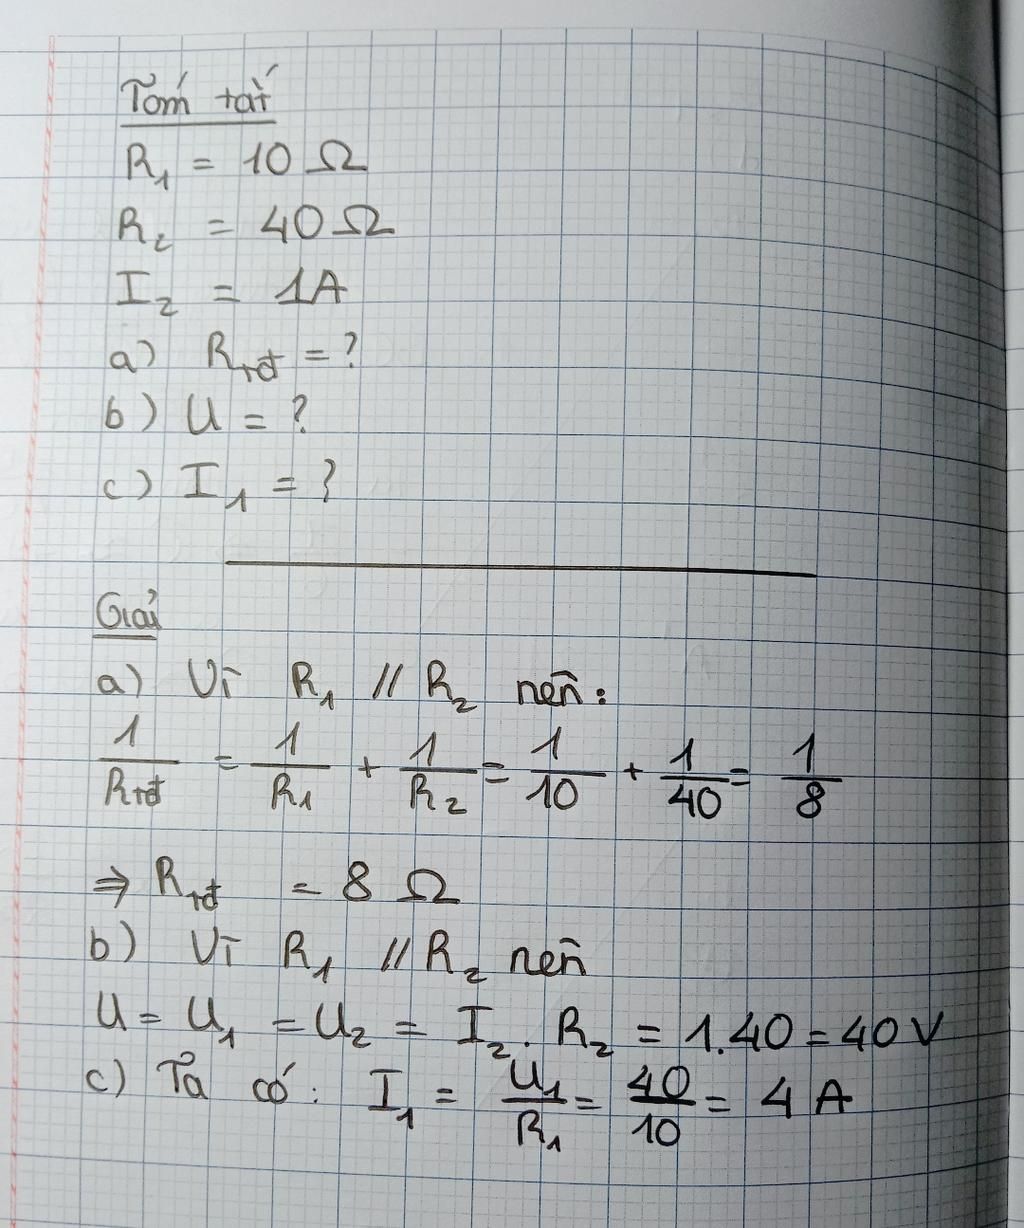 Tóm tắt
R₁ = 10 Ω
R₂ = 40 Ω
I₂ = 1A
a) Rtđ = ?
b) U = ?
c) I₁ = ?
Giải
a) Vì R₁ // R₂ nên:
1/Rtđ = 1/R₁ + 1/R₂ = 1/10 + 1/40 = 1/8
⇒ Rtđ = 8 Ω
b) Vì R₁ // R₂ nên
U = U₁ = U₂ = I₂ . R₂ = 1.40 = 40 V
c) Ta có: I₁ = U₁/R₁ = 40/10 = 4 A